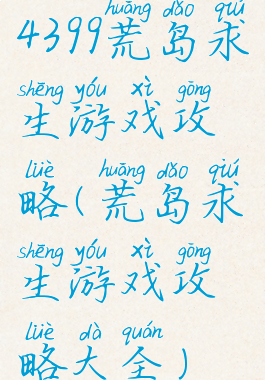 huāng dǎo qiú
4399荒岛求
shēng yóu xì gōng
生游戏攻
lüè huāng dǎo qiú
略(荒岛求
shēng yóu xì gōng
生游戏攻
lüè dà quán
略大全)